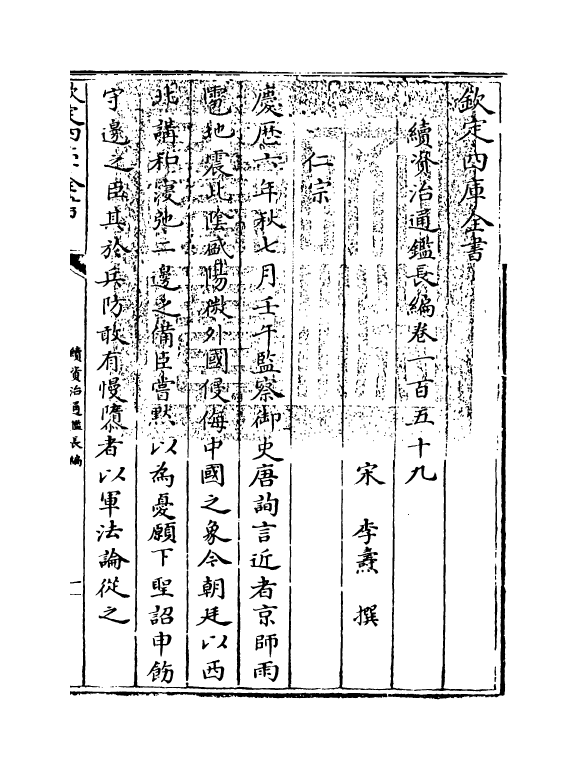 欽定四庫全書
續資治通鑑長編卷一百五十九
宋 李燾 撰
仁宗
慶歷六年秋七月壬午監察御史唐詢言近者京師雨
雹地震此陰盛陽微外國侵侮中國之象今朝廷以西
北講和寖弛二邊之備臣嘗黙以為憂願下聖詔申飭
守邊之臣其於兵防敢有慢隳者以軍法論從之
欽定四庫全書
續資治通鑑長編
一